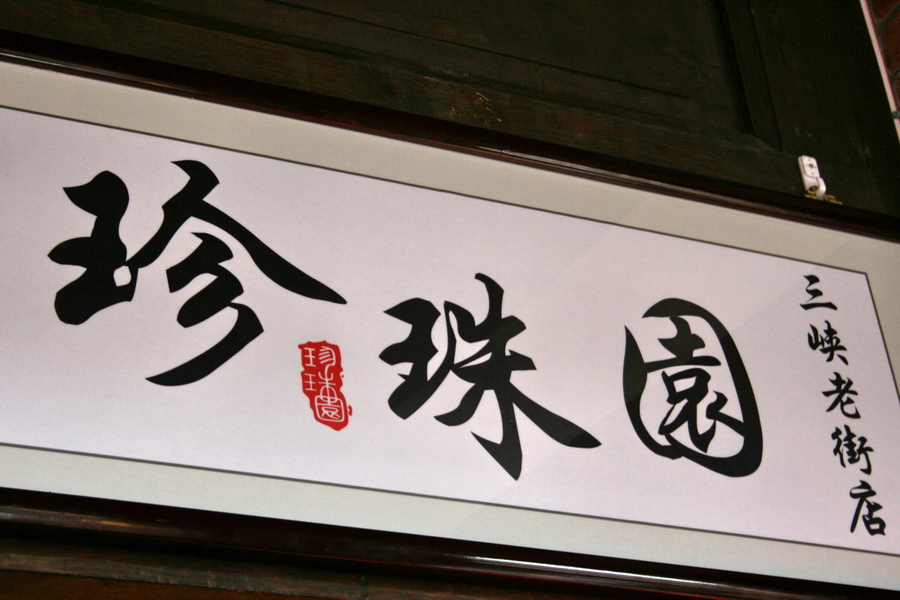 珍珠園
珍珠園
三峽老街店